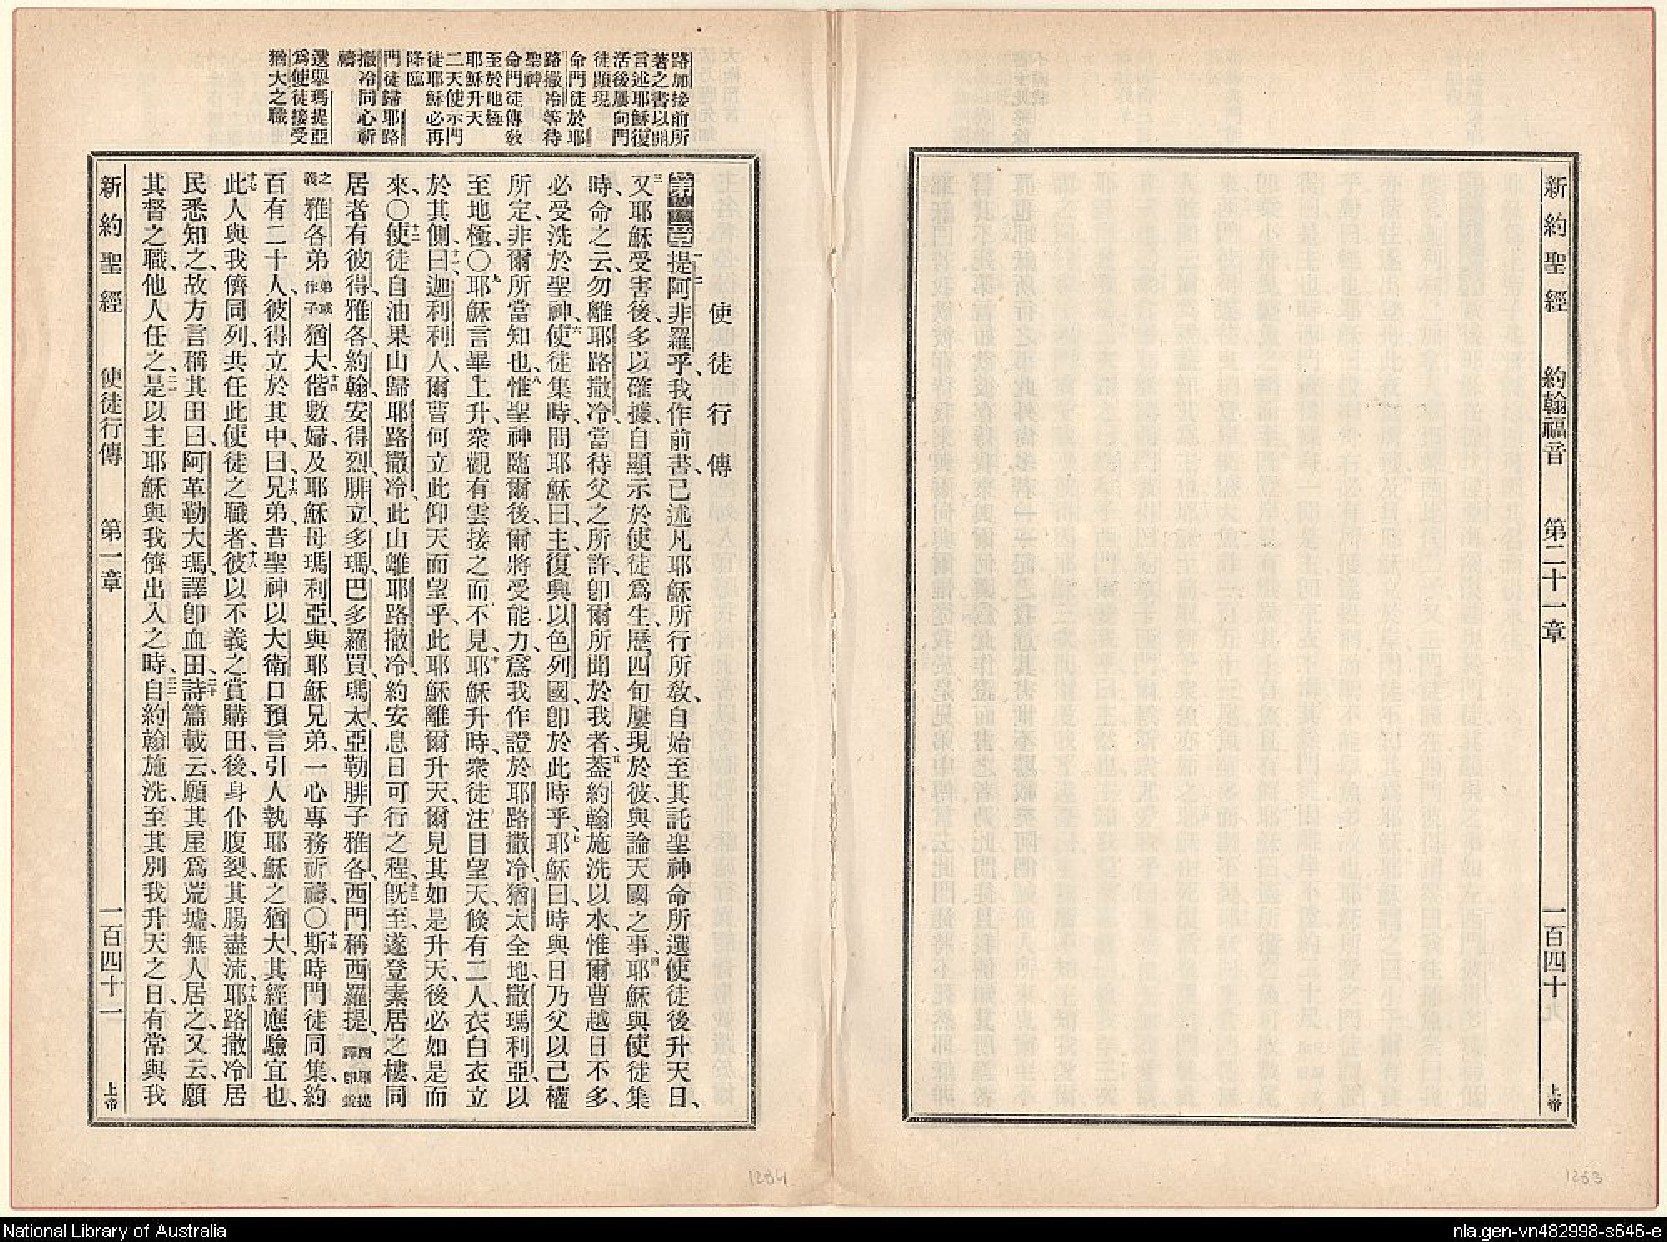 新約聖經 約翰福音 第二十一章 一百四十九 上帝
路加接前所
著之書以開
言述耶穌復
活後屢向門
徒顯現
命門徒於耶
路撒冷等待
聖神
命門徒傳敎
至於地極
耶穌升天
二天使示門
徒耶穌必再
降臨
門徒歸耶路
撒冷同心祈
禱
選舉瑪提亞
爲使徒接受
猶大之職
使徒行傳
第一章 一二提阿非羅乎、我作前書、已述凡耶穌所行所敎、自始至其託聖神命所選使徒後升天日、
三又耶穌受害後、多以確據、自顯示於使徒爲生、歷四旬屢現於彼、與論天國之事、四耶穌與使徒集
時、命之云、勿離耶路撒冷、當待父之所許、卽爾所聞於我者、五蓋約翰施洗以水、惟爾曹越日不多、
必受洗於聖神、六使徒集時、問耶穌曰、主復興以色列國、卽於此時乎、七耶穌曰、時與日乃父以己權
所定、非爾所當知也、八惟聖神臨爾後、爾將受能力、爲我作證、於耶路撒冷、猶太全地、撒瑪利亞、以
至地極、〇九耶穌言畢上升、衆觀有雲接之而不見、十耶穌升時、衆徒注目望天、倏有二人、衣白衣、立
於其側、十一曰、迦利利人、爾曹何立此仰天而望乎、此耶穌離爾升天、爾見其如是升天、後必如是而
來、〇十二使徒自油果山歸耶路撒冷、此山離耶路撒冷、約安息日可行之程、十三旣至、遂登素居之樓、同
居者有彼得、雅各、約翰、安得烈、腓立、多瑪、巴多羅買、瑪太、亞勒腓子雅各、西門稱西羅提、西羅提譯卽銳
之義 雅各弟弟或作子猶大、十四偕數婦、及耶穌母瑪利亞、與耶穌兄弟、一心專務祈禱、〇十五斯時門徒同集、約
百有二十人、彼得立於其中、曰、十六兄弟、昔聖神以大衛口預言、引人執耶穌之猶大、其經應驗宜也、
十七此人與我儕同列、共任此使徒之職者、十八彼以不義之賞購田、後身仆腹裂、其腸盡流、十九耶路撒冷居
民悉知之、故方言稱其田曰、阿革勒大瑪、譯卽血田、二十詩篇載云、願其屋爲荒墟、無人居之、又云、願
其督之職、他人任之、二一是以主耶穌與我儕出入之時、二二自約翰施洗、至其別我升天之日、有常與我
新約聖經 使徒行傳 第一章 一百四十一 上帝
1254
1253
National Library of Australia
nla.gen-vn482998-s646-e